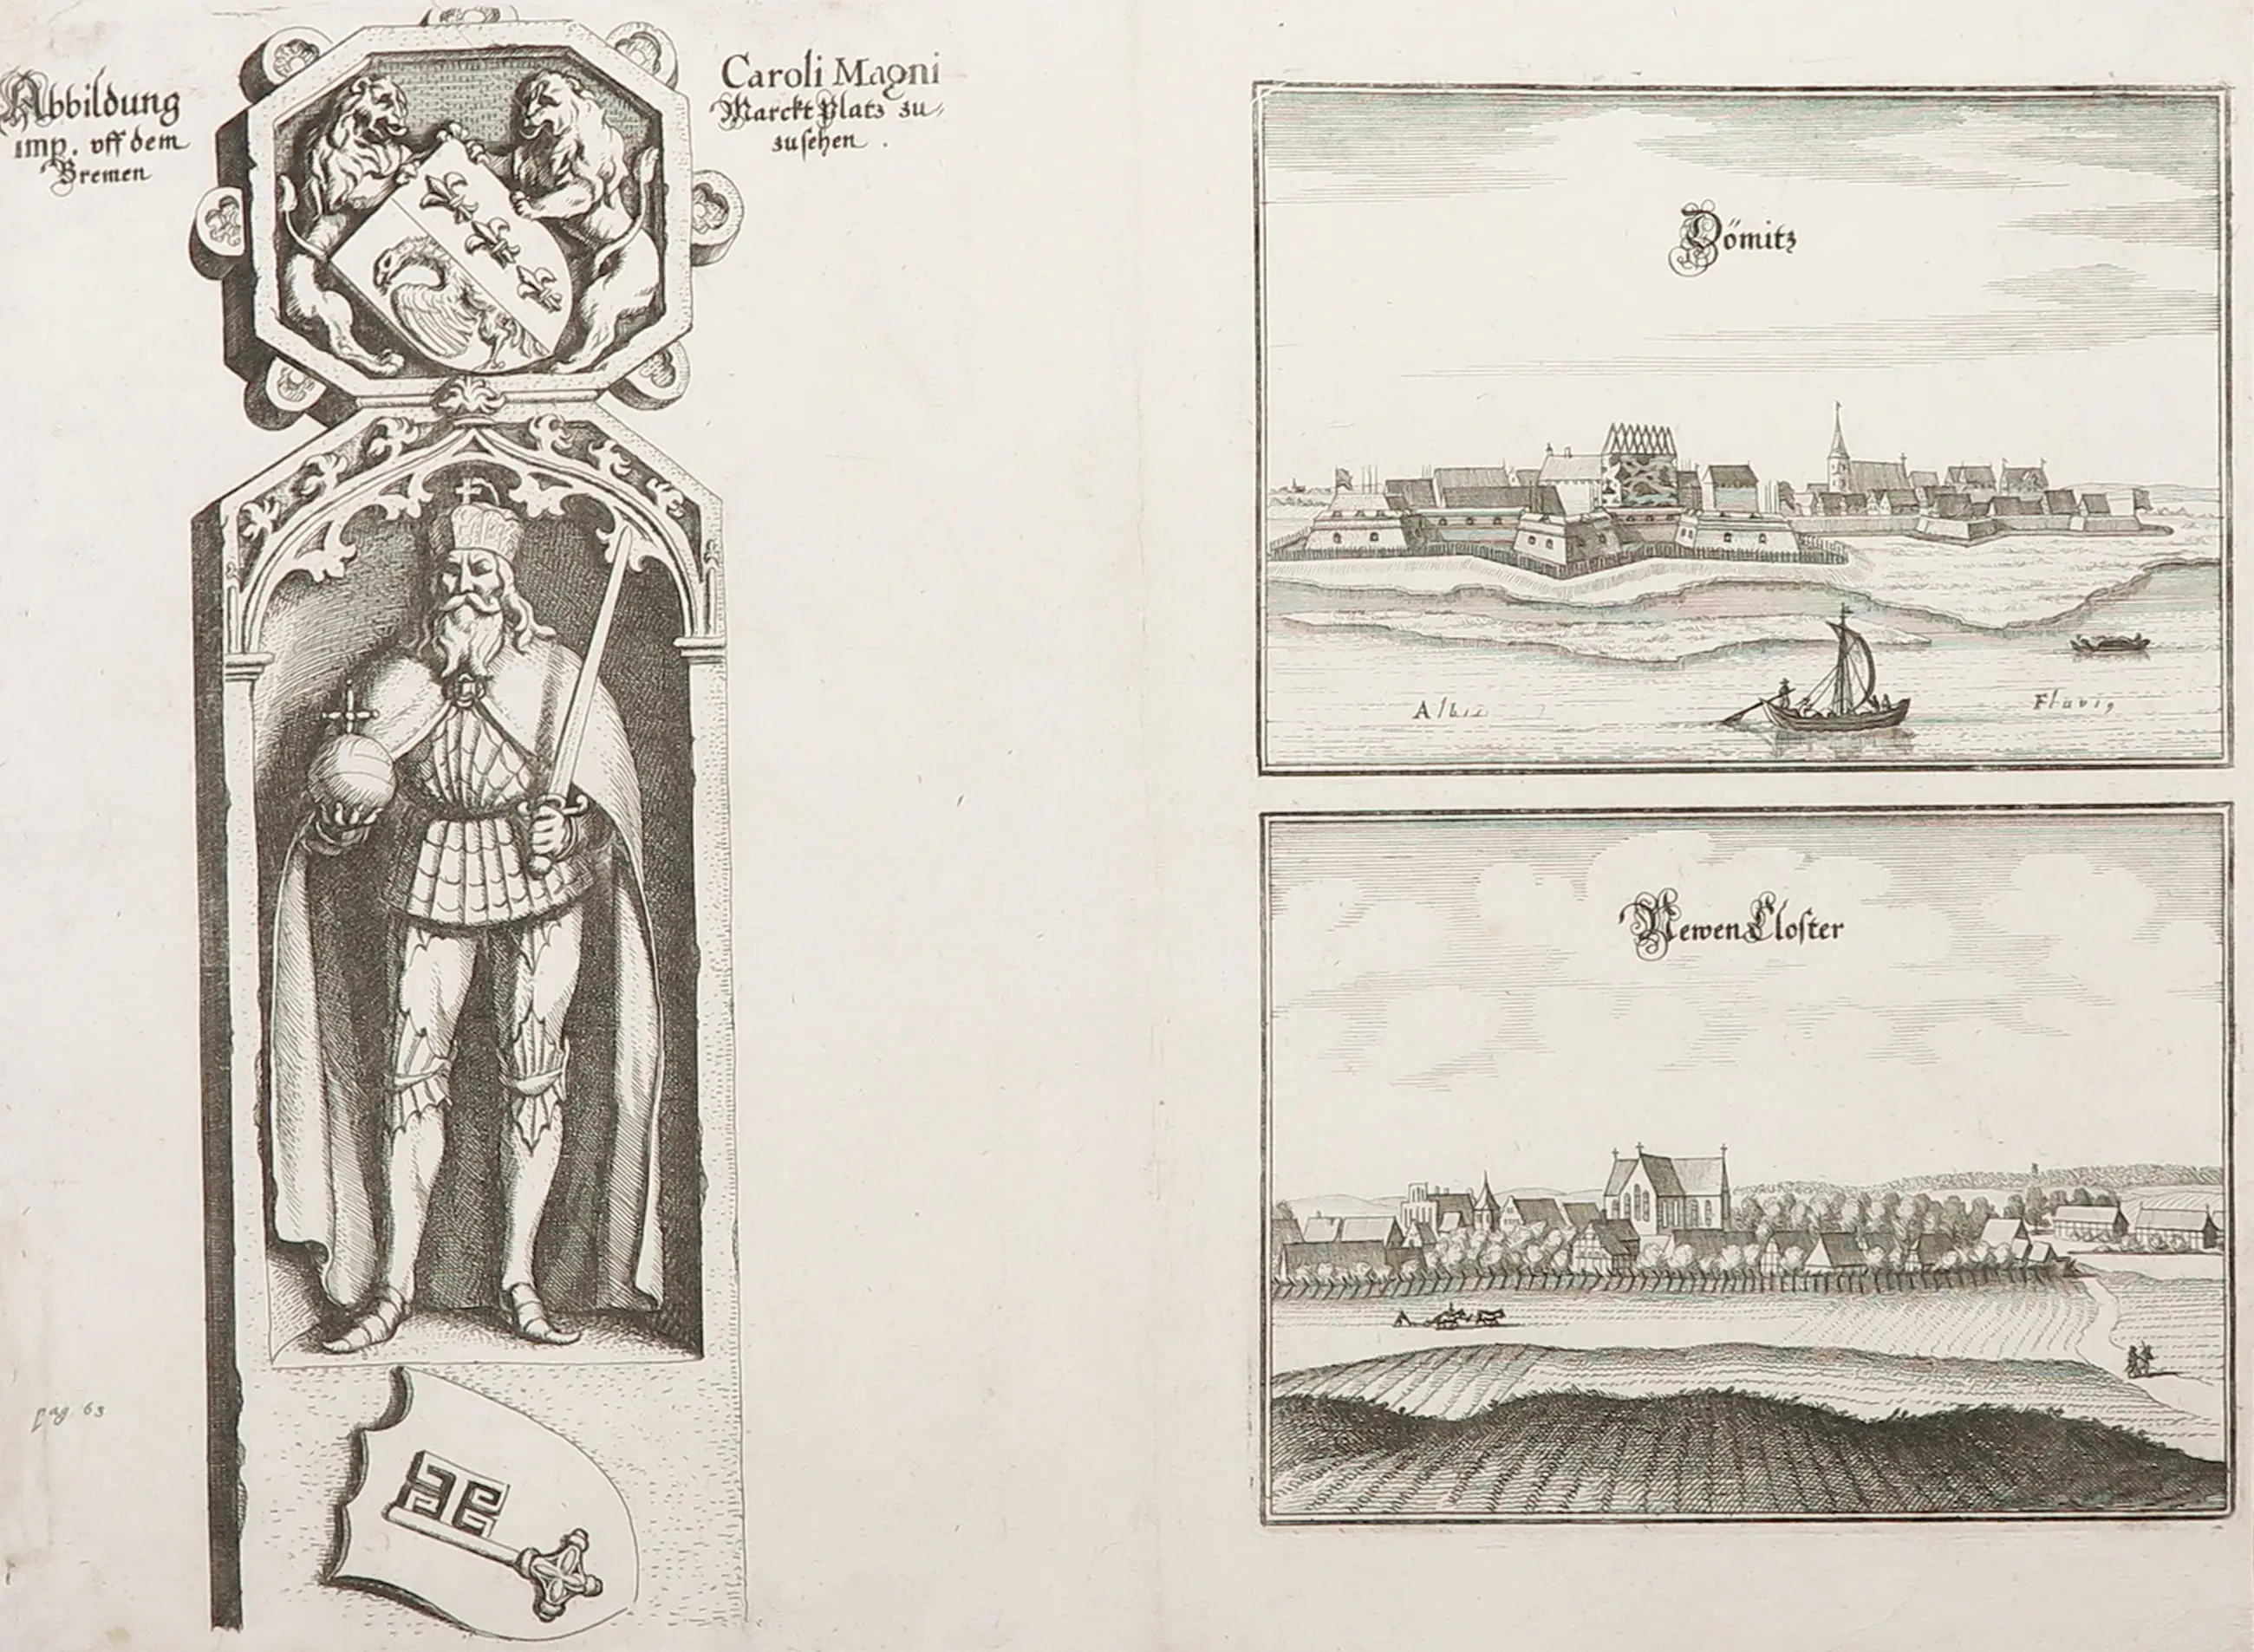 Abbildung Caroli Magni
imp. vff dem Marckt Platz zu,
Bremen zusehen .
pag. 63
Dömitz
Albis Fluvi9
Newen Closter